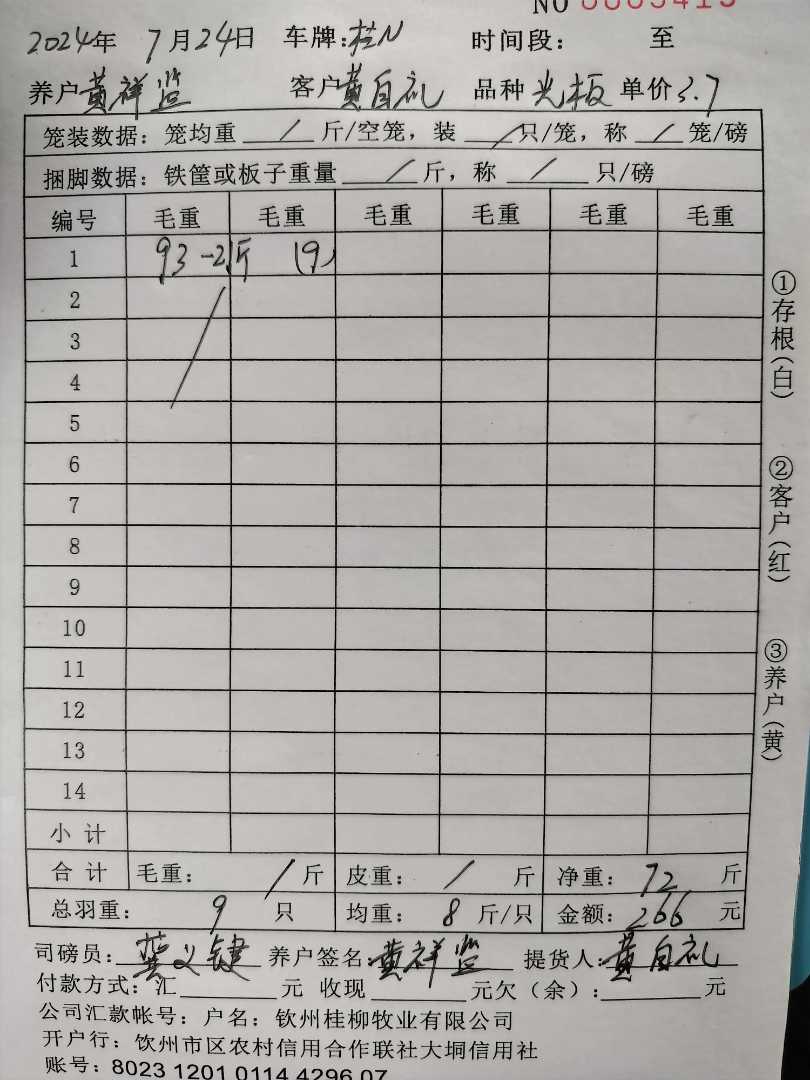 NO 0005415
2024年 7月24日 车牌: 时间段: 至
养户黄祥监 客户黄自礼 品种 光板 单价3.7
笼装数据: 笼均重 / 斤/空笼, 装 / 只/笼, 称 / 笼/磅
捆脚数据: 铁筐或板子重量 / 斤, 称 / 只/磅
编号 毛重 毛重 毛重 毛重 毛重 毛重
1 93 -21斤 (9)
2
3
4
5
6
7
8
9
10
11
12
13
14
小计
合计 毛重: / 斤 皮重: / 斤 净重: 72 斤
总羽重: 9 只 均重: 8 斤/只 金额: 266 元
司磅员: 龚义键 养户签名:黄祥监 提货人:黄自礼
付款方式: 汇 元 收现 元欠(余): 元
公司汇款帐号: 户名: 钦州桂柳牧业有限公司
开户行: 钦州市区农村信用合作联社大垌信用社
账号: 8023 1201 0114 4296 07
①存根(白)
②客户(红)
③养户(黄)